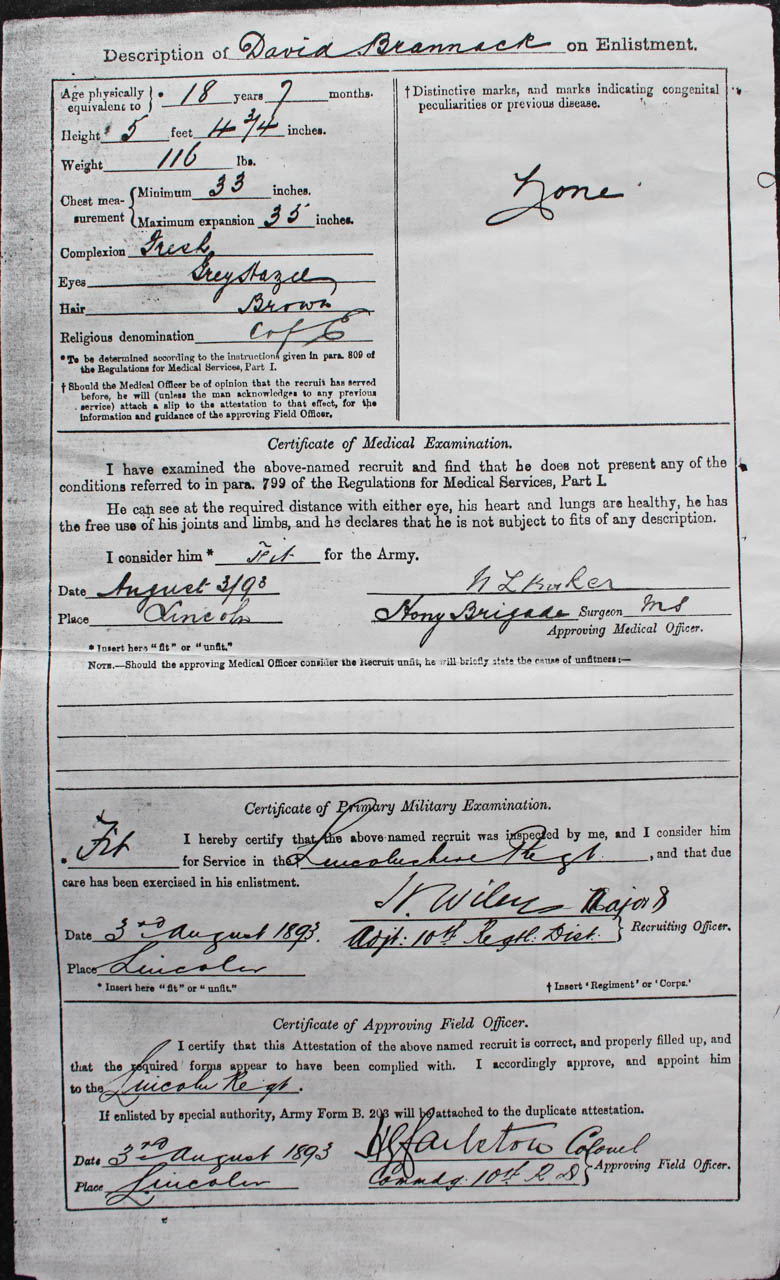 Description of David Brannack on Enlistment.
Age physically equivalent to } * 18 years 7 months.
Height 5 feet 4 3/4 inches.
Weight 116 lbs.
Chest mea-surement { Minimum 33 inches.
Maximum expansion 35 inches.
Complexion Fresh
Eyes Grey Hazel
Hair Brown
Religious denomination C of E
*To be determined according to the instructions given in para. 809 of
the Regulations for Medical Services, Part I.
† Should the Medical Officer be of opinion that the recruit has served
before, he will (unless the man acknowledges to any previous
service) attach a slip to the attestation to that effect, for the
information and guidance of the approving Field Officer.
† Distinctive marks, and marks indicating congenital
peculiarities or previous disease.
None
Certificate of Medical Examination.
I have examined the above-named recruit and find that he does not present any of the
conditions referred to in para. 799 of the Regulations for Medical Services, Part I.
He can see at the required distance with either eye, his heart and lungs are healthy, he has
the free use of his joints and limbs, and he declares that he is not subject to fits of any description.
I consider him * Fit for the Army.
Date August 3/93
Place Lincoln Hony Brigade Surgeon MS
Approving Medical Officer.
* Insert here "fit" or "unfit."
NOTE.—Should the approving Medical Officer consider the Recruit unfit, he will briefly state the cause of unfitness:—
Certificate of Primary Military Examination.
I hereby certify that the above-named recruit was inspected by me, and I consider him
* Fit for Service in the Lincolnshire Regt. , and that due
care has been exercised in his enlistment.
Major
Date 3rd August 1893. Adjt: 10th Regtl: Dist. } Recruiting Officer.
Place Lincoln
* Insert here "fit" or "unfit."
† Insert 'Regiment' or 'Corps.'
Certificate of Approving Field Officer.
I certify that this Attestation of the above named recruit is correct, and properly filled up, and
that the required forms appear to have been complied with. I accordingly approve, and appoint him
to the Lincoln Regt.
If enlisted by special authority, Army Form B. 203 will be attached to the duplicate attestation.
Date 3rd August 1893 Colonel
Place Lincoln Commdg. 10th R. D. } Approving Field Officer.